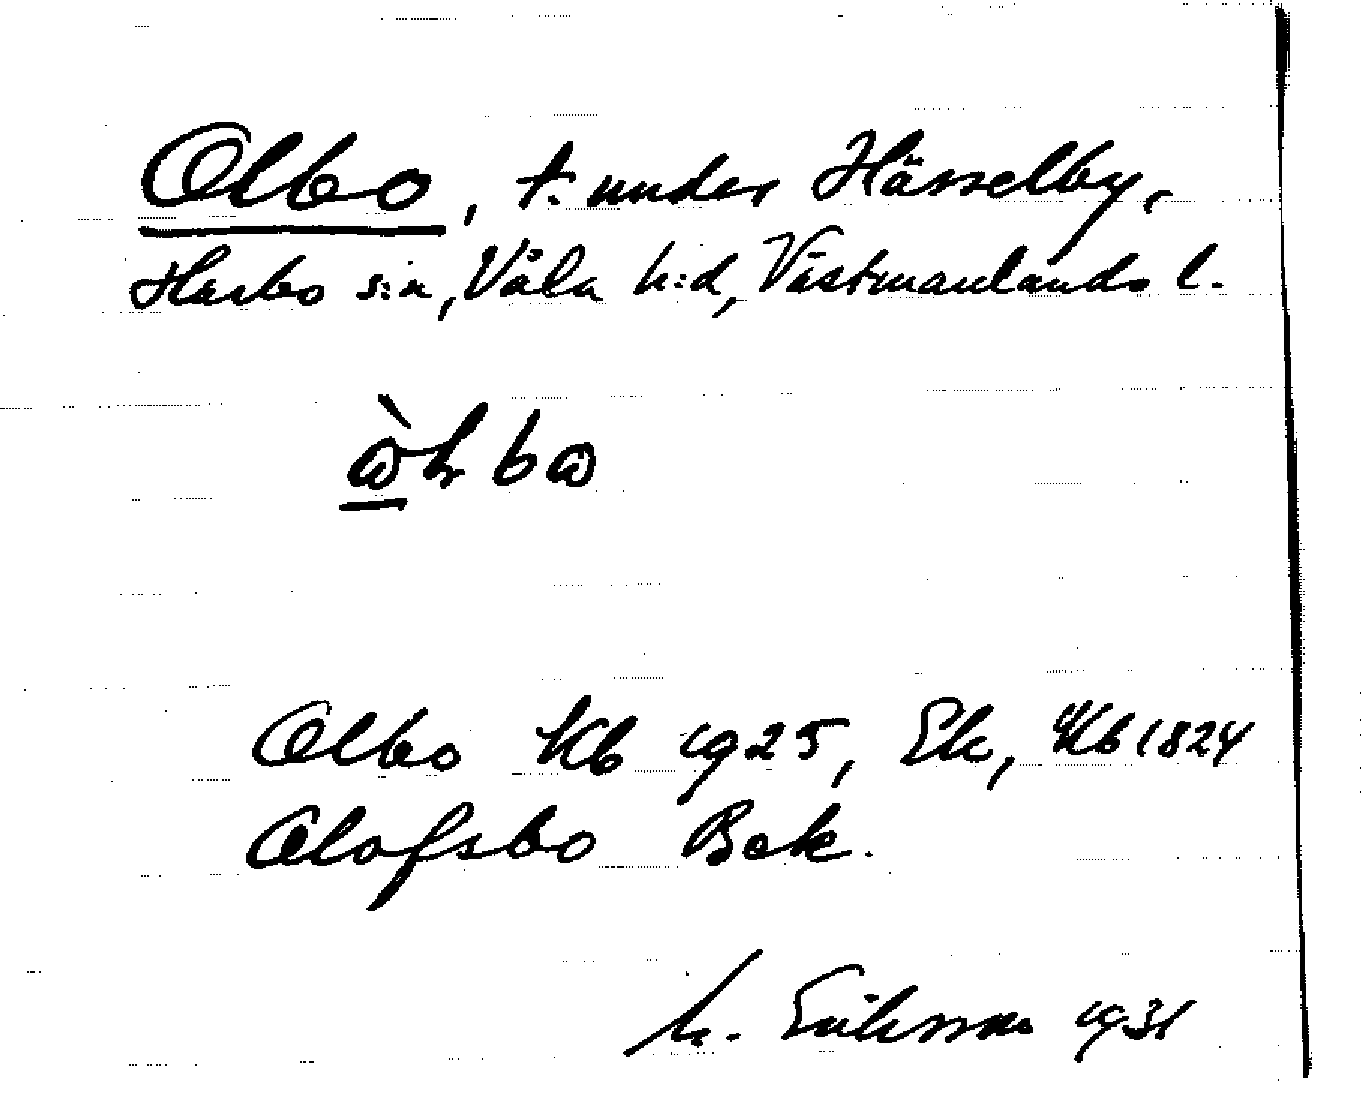 Olbo, t. under Hässelby,
Harbo s:n, Våla h:d, Västmanlands l.
Olbo Kb 1925, Ek, Kb 1824
Olofsbo Bek.
M. Eriksson 1931